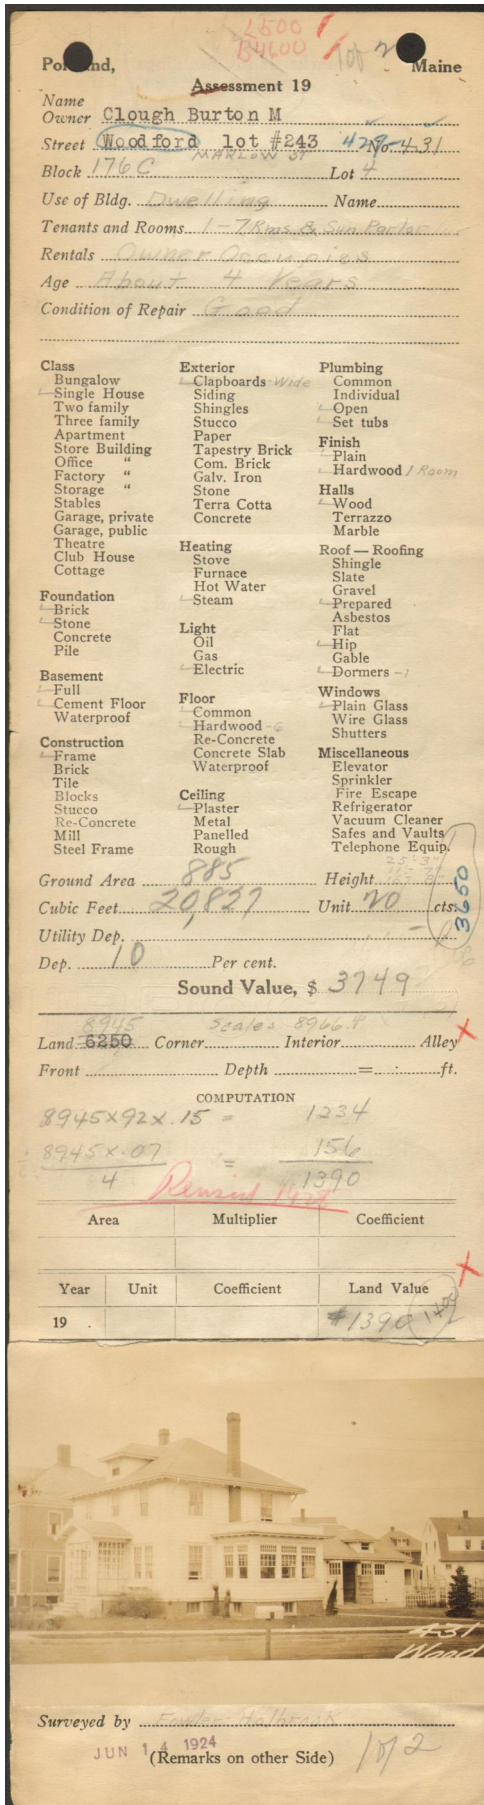 L500
B4600
100 2
Portland, Maine
Assessment 19
Name
Owner Clough Burton M
Street Woodford lot #243 429 No. 431
MARLOW ST
Block 176C Lot 4
Use of Bldg. Dwelling Name
Tenants and Rooms 1-7 Rms & Sun Parlor
Rentals Owner Occupies
Age About 4 Years
Condition of Repair Good
Class
Bungalow
Single House
Two family
Three family
Apartment
Store Building
Office "
Factory "
Storage "
Stables
Garage, private
Garage, public
Theatre
Club House
Cottage
Foundation
Brick
Stone
Concrete
Pile
Basement
Full
Cement Floor
Waterproof
Construction
Frame
Brick
Tile
Blocks
Stucco
Re-Concrete
Mill
Steel Frame
Exterior
Clapboards - Wide
Siding
Shingles
Stucco
Paper
Tapestry Brick
Com. Brick
Galv. Iron
Stone
Terra Cotta
Concrete
Heating
Stove
Furnace
Hot Water
Steam
Light
Oil
Gas
Electric
Floor
Common
Hardwood - 6
Re-Concrete
Concrete Slab
Waterproof
Ceiling
Plaster
Metal
Panelled
Rough
Plumbing
Common
Individual
Open
Set tubs
Finish
Plain
Hardwood 1 Room
Halls
Wood
Terrazzo
Marble
Roof — Roofing
Shingle
Slate
Gravel
Prepared
Asbestos
Flat
Hip
Gable
Dormers - 1
Windows
Plain Glass
Wire Glass
Shutters
Miscellaneous
Elevator
Sprinkler
Fire Escape
Refrigerator
Vacuum Cleaner
Safes and Vaults
Telephone Equip.
25'-3"
Ground Area 885 Height
Cubic Feet 20,827 Unit 20 cts.
3650
Utility Dep.
Dep. 10 Per cent.
Sound Value, $ 3749
8945 Scales 8966
Land 6250 Corner Interior Alley
Front Depth = ft.
COMPUTATION
8945 x 92 x .15 = 1234
8945 x .07 = 156
4 1390
Revised 1928
Area Multiplier Coefficient
Year Unit Coefficient Land Value
19 . #1390 1400
431
Wood
Surveyed by Fowler-Holbrook
JUN 14 1924
(Remarks on other Side) 1 of 2